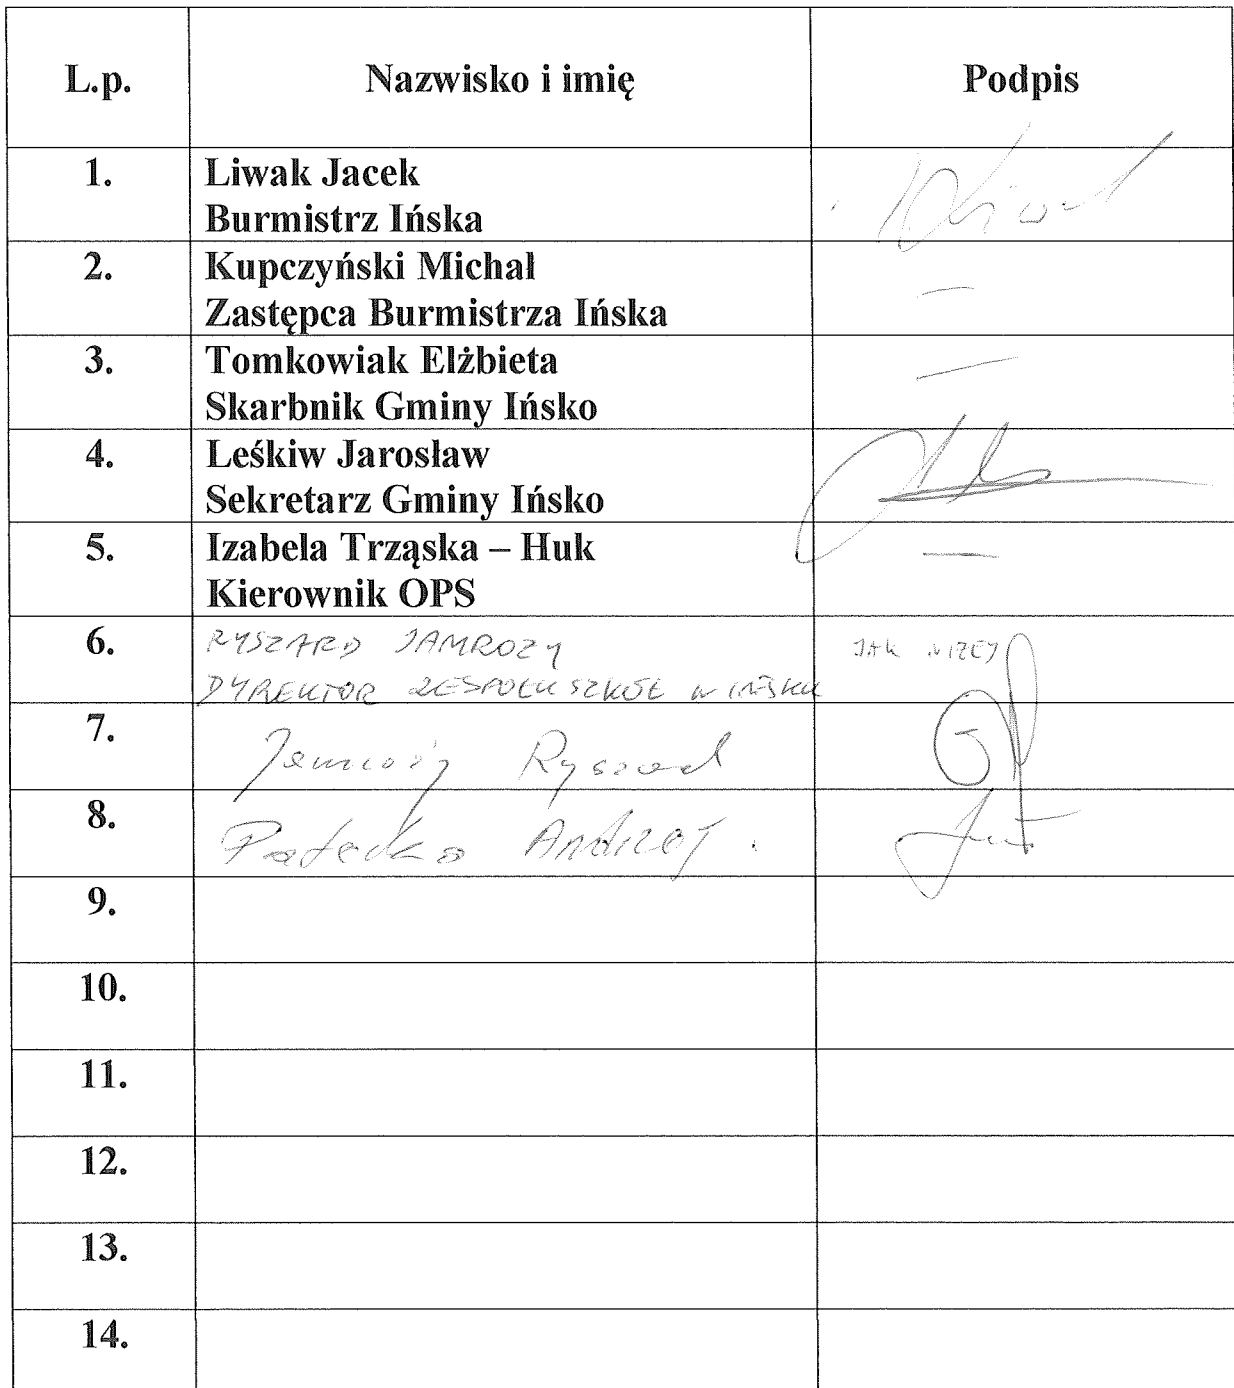 L.p. Nazwisko i imię Podpis
1. Liwak Jacek
Burmistrz Ińska
2. Kupczyński Michał —
Zastępca Burmistrza Ińska
3. Tomkowiak Elżbieta —
Skarbnik Gminy Ińsko
4. Leśkiw Jarosław
Sekretarz Gminy Ińsko
5. Izabela Trząska – Huk —
Kierownik OPS
6. RYSZARD JAMROZY JAK NIŻEJ
DYREKTOR ZESPOŁU SZKÓŁ W IŃSKU
7. Jamroży Ryszard
8. Andrzej
9.
10.
11.
12.
13.
14.